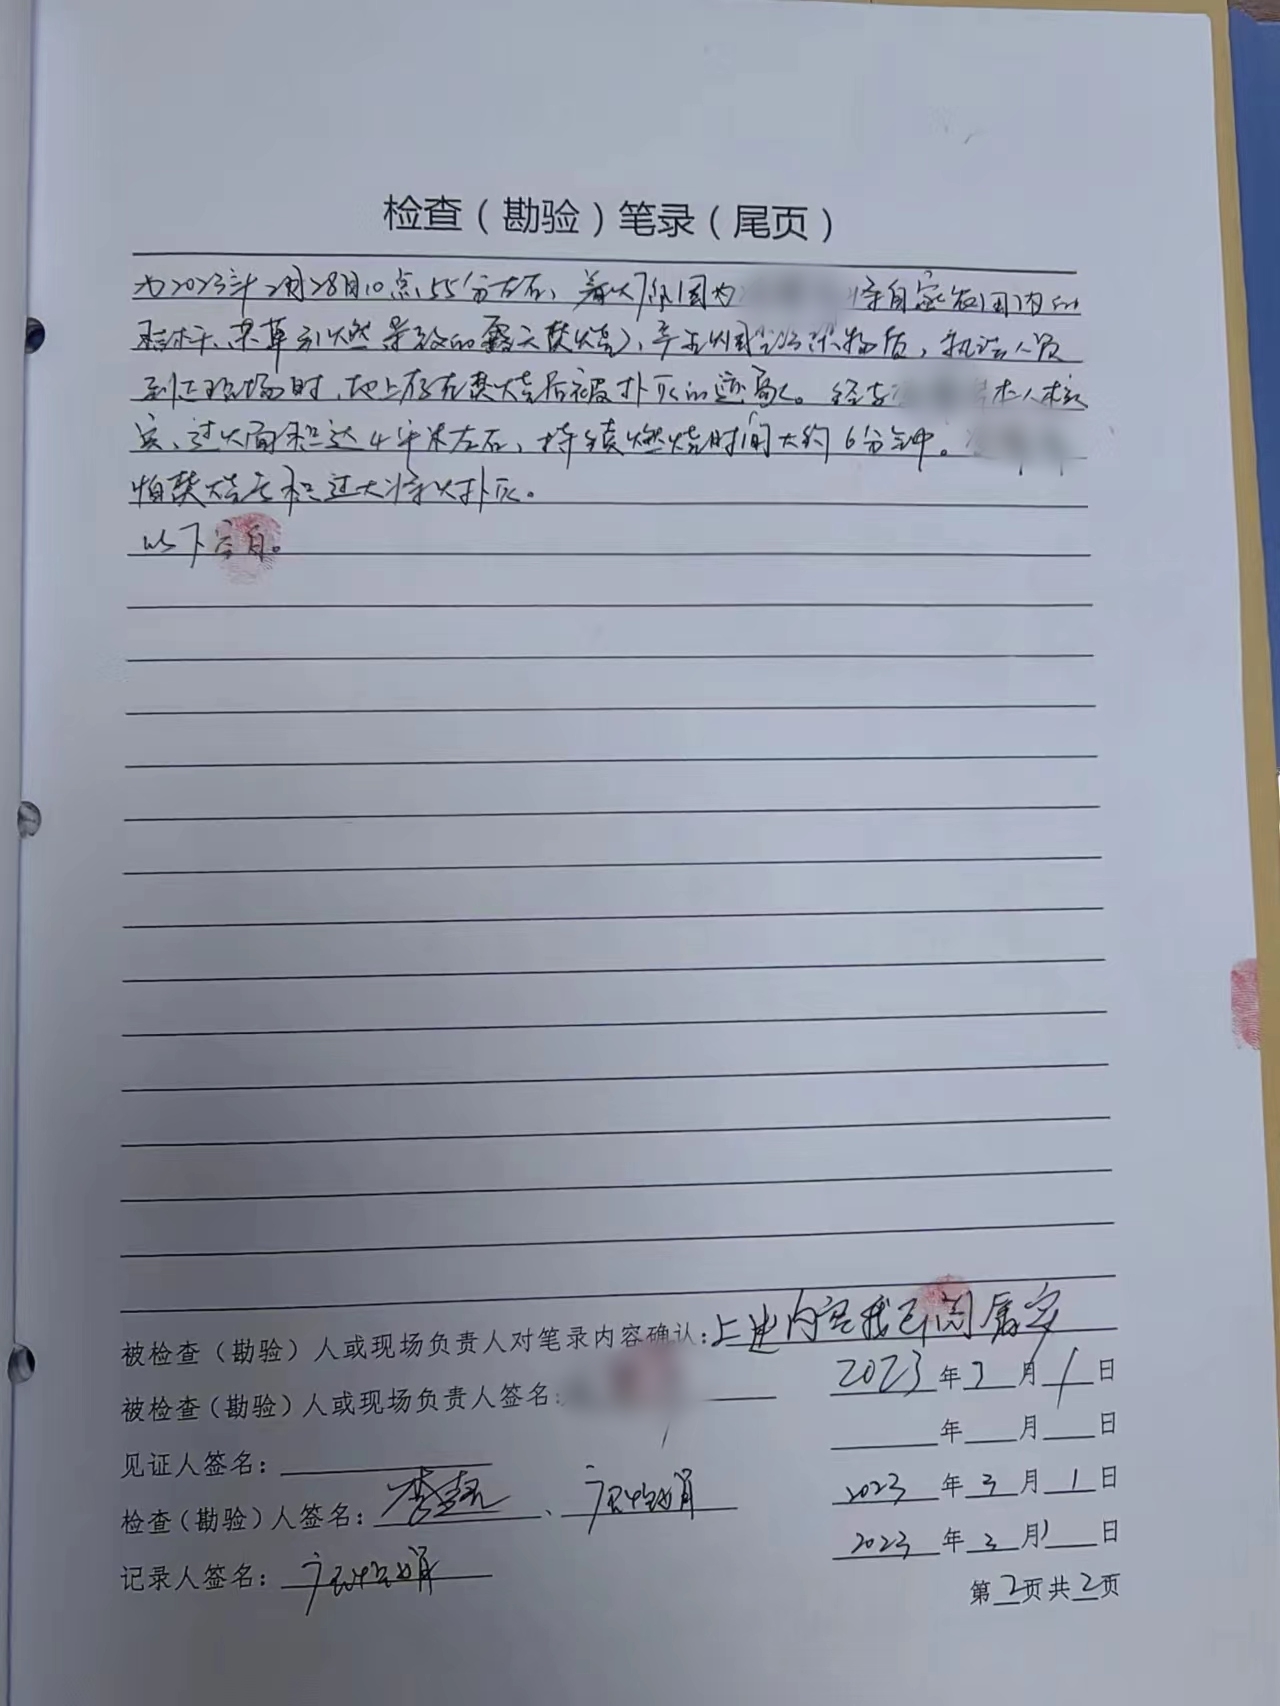 检查（勘验）笔录（尾页）
为2023年2月28日10点55分左右，着火原因为 将自家农田内的
秸秆、杂草引燃导致的露天焚烧，产生烟尘污染物质，执法人员
到达现场时，地上存在焚烧后被扑灭的迹象。经与 本人核
实，过火面积达4平米左右，持续燃烧时间大约6分钟。
怕焚烧面积过大将火扑灭。
以下空白。
被检查（勘验）人或现场负责人对笔录内容确认：上述内容我已阅属实
被检查（勘验）人或现场负责人签名： 2023年3月1日
见证人签名： 年 月 日
检查（勘验）人签名： 、 2023年3月1日
记录人签名： 2023年3月1日
第2页共2页